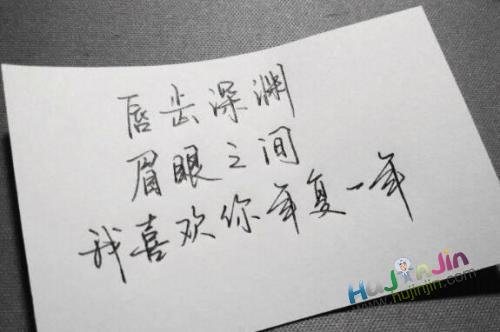 唇齿深渊
眉眼之间
我喜欢你年复一年
HuJinJin
www.hujinjin.com